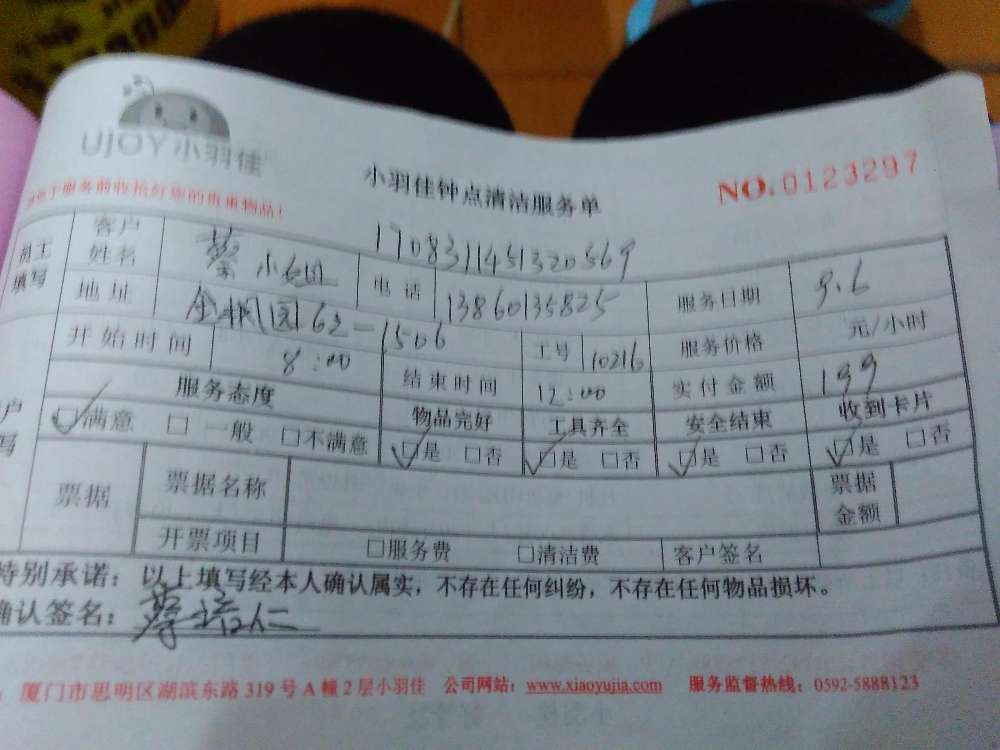 UJOY小羽佳
小羽佳钟点清洁服务单
NO.0123297
于服务前收拾好您的贵重物品!
填写
客户姓名
蔡小姐
1708311451320569
电话
13860135825
服务日期
9.6
地址
金枫园62-1506
工号
10216
服务价格
元/小时
开始时间
8:00
结束时间
12:00
实付金额
199
服务态度
物品完好
工具齐全
安全结束
收到卡片
☑满意 □一般 □不满意
☑是 □否
☑是 □否
☑是 □否
☑是 □否
票据
票据名称
票据金额
开票项目
□服务费 □清洁费
客户签名
特别承诺：以上填写经本人确认属实，不存在任何纠纷，不存在任何物品损坏。
确认签名：蔡培仁
厦门市思明区湖滨东路319号A幢2层小羽佳 公司网站：www.xiaoyujia.com 服务监督热线：0592-5888123